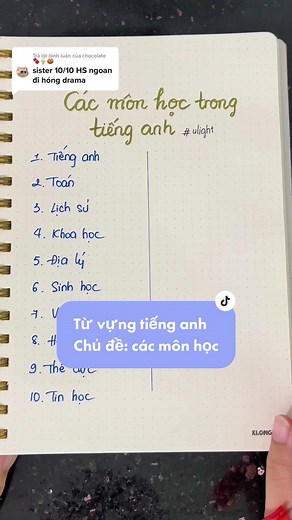 Trả lời bình luận của chocolate
sister 10/10 HS ngoan
đi hóng drama
Các môn học trong
tiếng anh #ulight
1. Tiếng anh
2. Toán
3. Lịch sử
4. Khoa học
5. Địa lý
6. Sinh học
7. V
Từ vựng tiếng anh
Chủ đề: các môn học
8. H
9. Thể dục
10. Tin học
KLONG